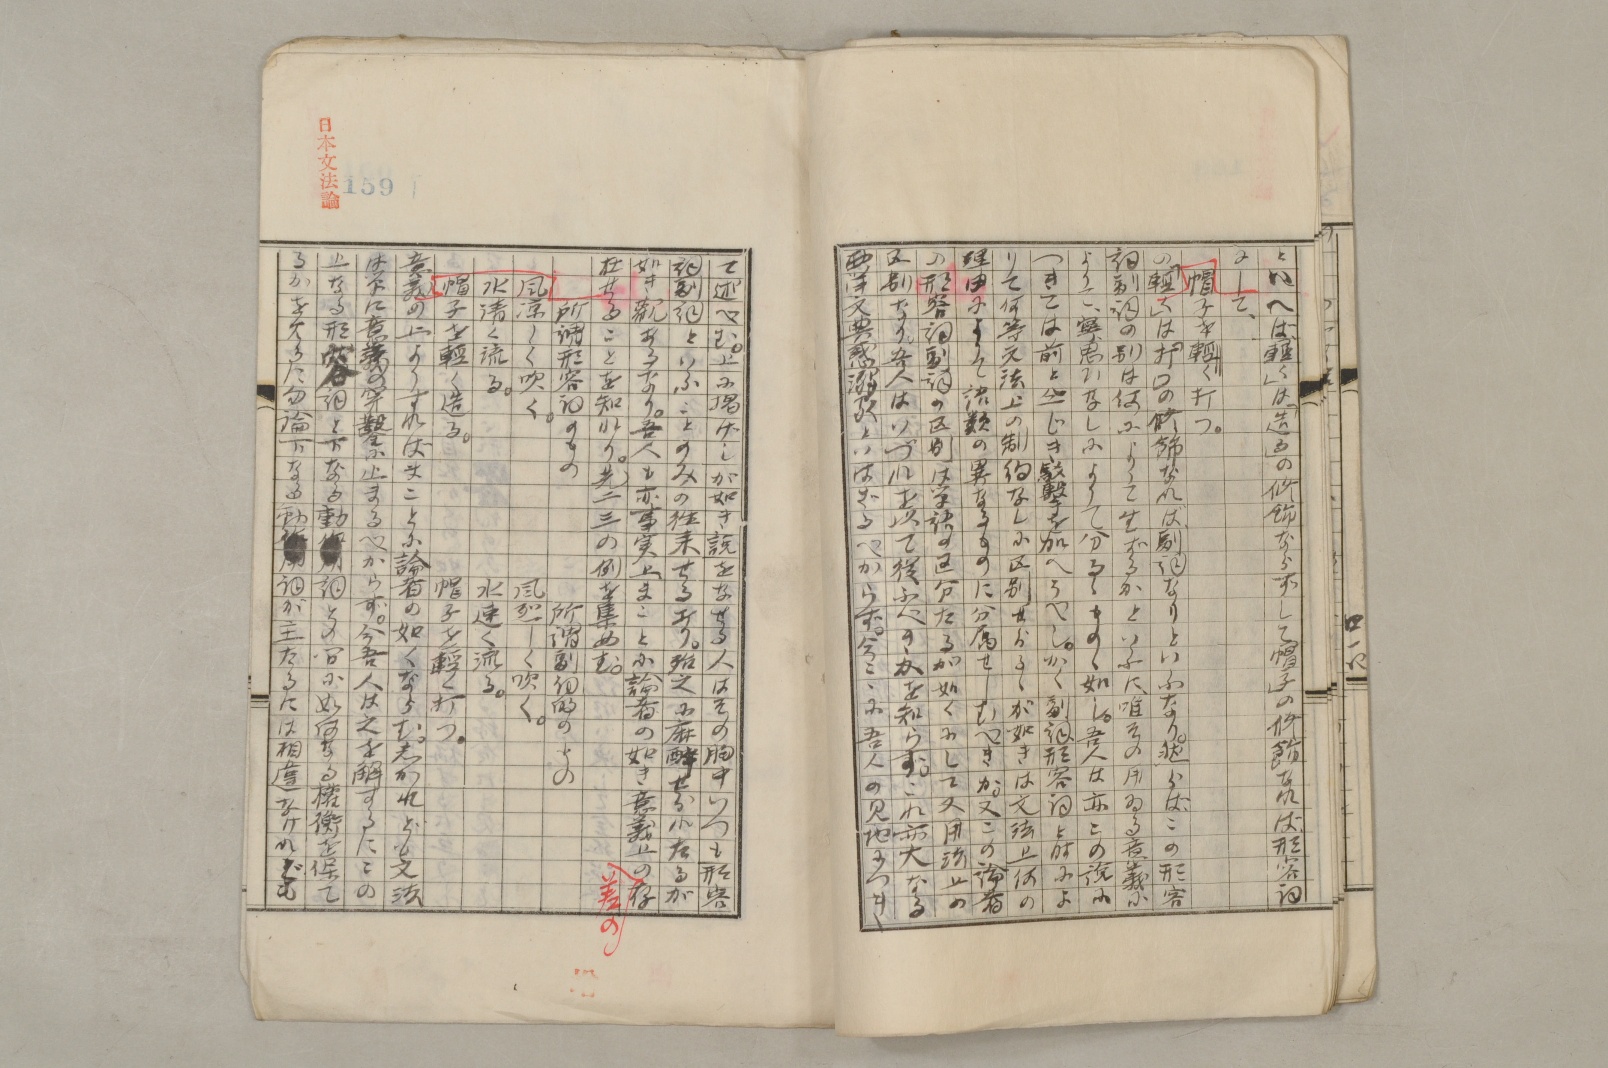 といへば「輕く」は「造る」の修飾ならずして帽子の修飾なれば形容詞
にして、
帽子を輕く打つ。
の「輕く」は「打つ」の修飾なれば、副詞なりといふなり。然らばこの形容
詞副詞の別は何によりて生ずるかといふに、唯その用ゐる意義に
よりて
つきては前と同じき駁擊を加へうべし。かく副詞形容詞と時によ
りて何等文法上の制約なしに区別せらるゝが如きは文法上何の
理由によりて語類の異なるものに分属せしむべきか、又この論者
の形容詞副詞の区別は単語の区分たるが如くにして又用法上の
区別なり。吾人はいづれに従ふべきかを知らず。これ亦大なる
西洋文典惑溺家といはざるべからず。今ここに吾人の見地につきて
て述べむ。上に掲げしが如き説をなせる人はその胸中いつも形容
詞副詞といふことのみの往来せるあり。殆之に麻酔せられたるが
如き観あるなり。吾人も亦事実上まことに論者の如き意義上の存
在せることを知れり。先二三の例を集めむ。
差の
所謂形容詞のもの
所謂副詞的のもの
風涼しく吹く。
風烈しく吹く。
水清く流る。
水速く流る。
帽子を輕く造る。
帽子を輕く打つ。
意義の上よりすればまことに論者の如くならむ。されども文法
は本に意義の穿鑿に止まるべからず。今吾人は之を解するにこの
上なる形容詞と下なる動詞との間に如何なる権衡を保て
るかを見るに勿論下なる動詞が主たるには相違なけれども
日本文法論
159